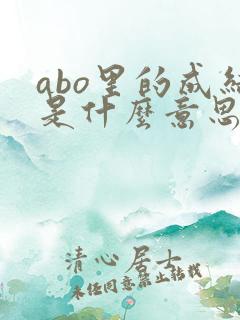 abo里的成结
是什麼意思
清心居士
未经同意禁止转载